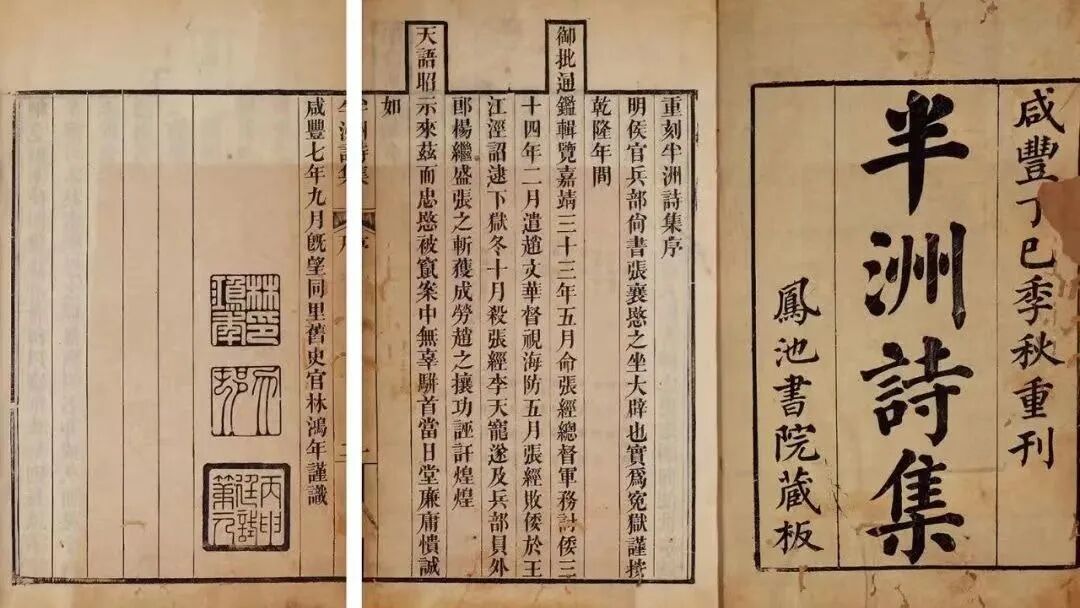 咸豐丁巳季秋重刊
半洲詩集
鳳池書院藏板
重刻半洲詩集序
明侯官兵部尚書張襄愍之坐大辟也實爲冤獄謹按
乾隆年間
御批通鑑輯覽嘉靖三十三年五月命張經總督軍務討倭三
十四年二月遣趙文華督視海防五月張經敗倭於王
江涇詔逮下獄冬十月殺張經李天寵遂及兵部員外
郎楊繼盛張之斬獲成勞趙之攘功誣訐煌煌
天語昭示來茲而忠愍被竄案中無辜駢首當日堂廉庸憒誠
如
半洲詩集 序
咸豐七年九月旣望同里舊史官林鴻年謹識
林印鴻年
勿邨
丙申廷對第